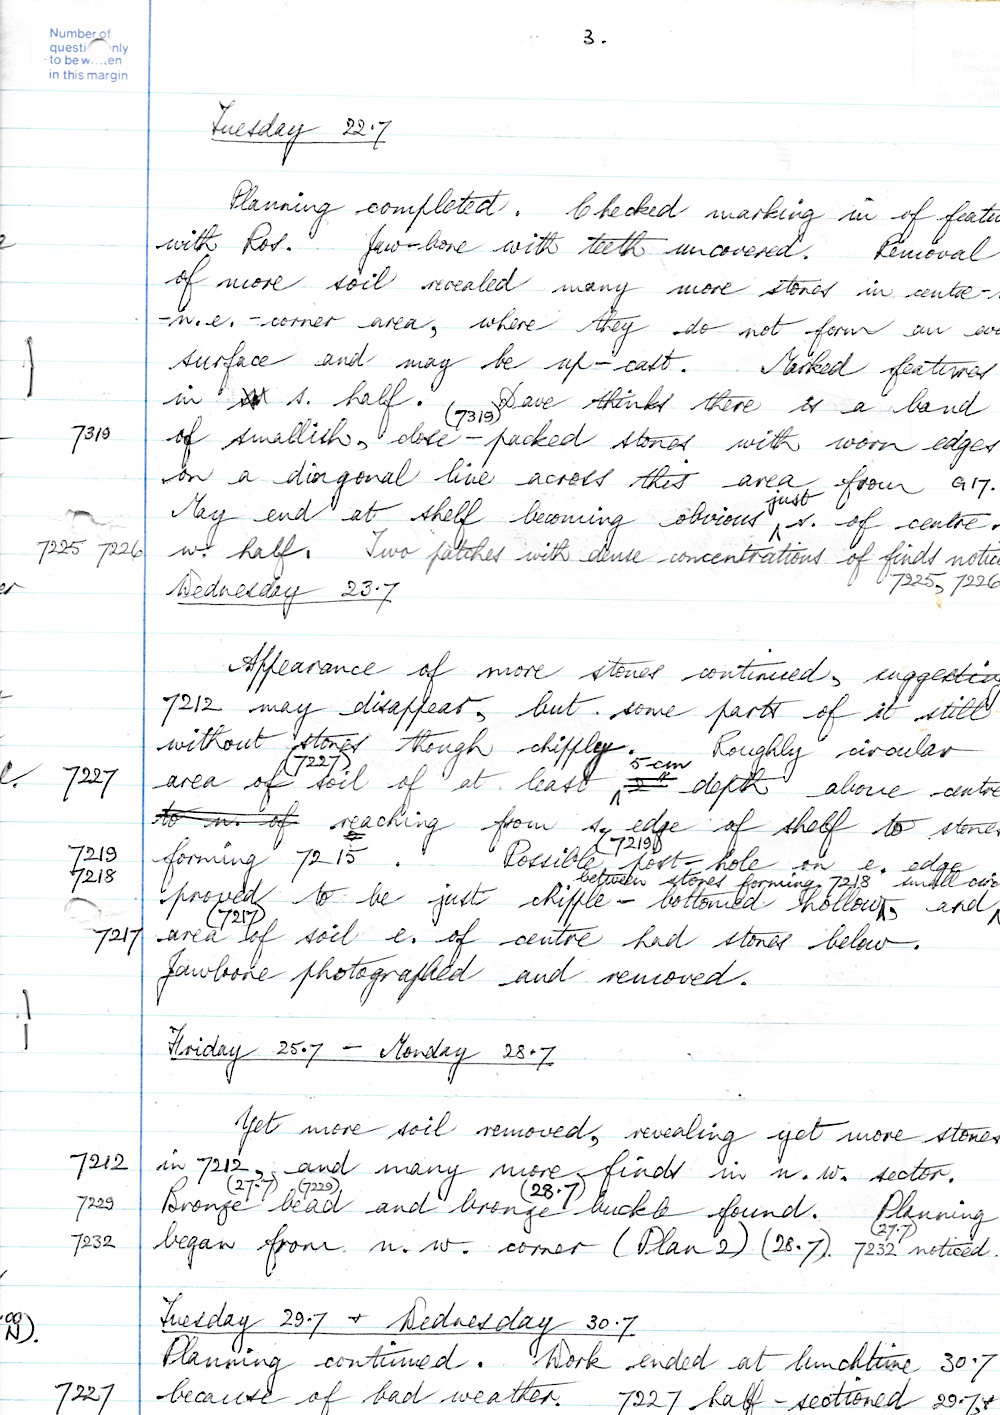 Number of
questi nly
to be w...en
in this margin
3.
Tuesday 22.7
Planning completed. Checked marking in of featu
with Ros. Jaw-bone with teeth uncovered. Removal
of more soil revealed many more stones in centre-
-n.e.-corner area, where they do not form an eve
surface and may be up-cast. Marked features
in s. half. Dave thinks there is a band
(7319)
7319 of smallish, close-packed stones with worn edges
on a diagonal line across this area from 917.
just
May end at shelf becoming obvious ^ s. of centre.
7225 7226 w. half. Two patches with dense concentrations of finds notic
7225, 7226
Wednesday 23.7
Appearance of more stones continued, suggesting
7212 may disappear, but some parts of it still
without stones though chippley. Roughly circular
(7227) 5 cm
7227 area of soil of at least ^ depth above centre
to n. of reaching from s. edge of shelf to stones
(7219)
7219 forming 7215. Possible post-hole on e. edge
between stones forming 7218 small circ
7218 proved to be just chipple-bottomed hollow, and
(7217)
7217 area of soil e. of centre had stones below.
Jawbone photographed and removed.
Friday 25.7 - Monday 28.7
Yet more soil removed, revealing yet more stones
7212 in 7212, and many more finds in n.w. sector.
(27.7) (7229) (28.7)
7229 Bronze bead and bronze buckle found. Planning
(27.7)
7232 began from n.w. corner (Plan 2) (28.7). 7232 noticed.
Tuesday 29.7 + Wednesday 30.7
N).
Planning continued. Work ended at lunchtime 30.7
7227 because of bad weather. 7227 half-sectioned 29.7, +